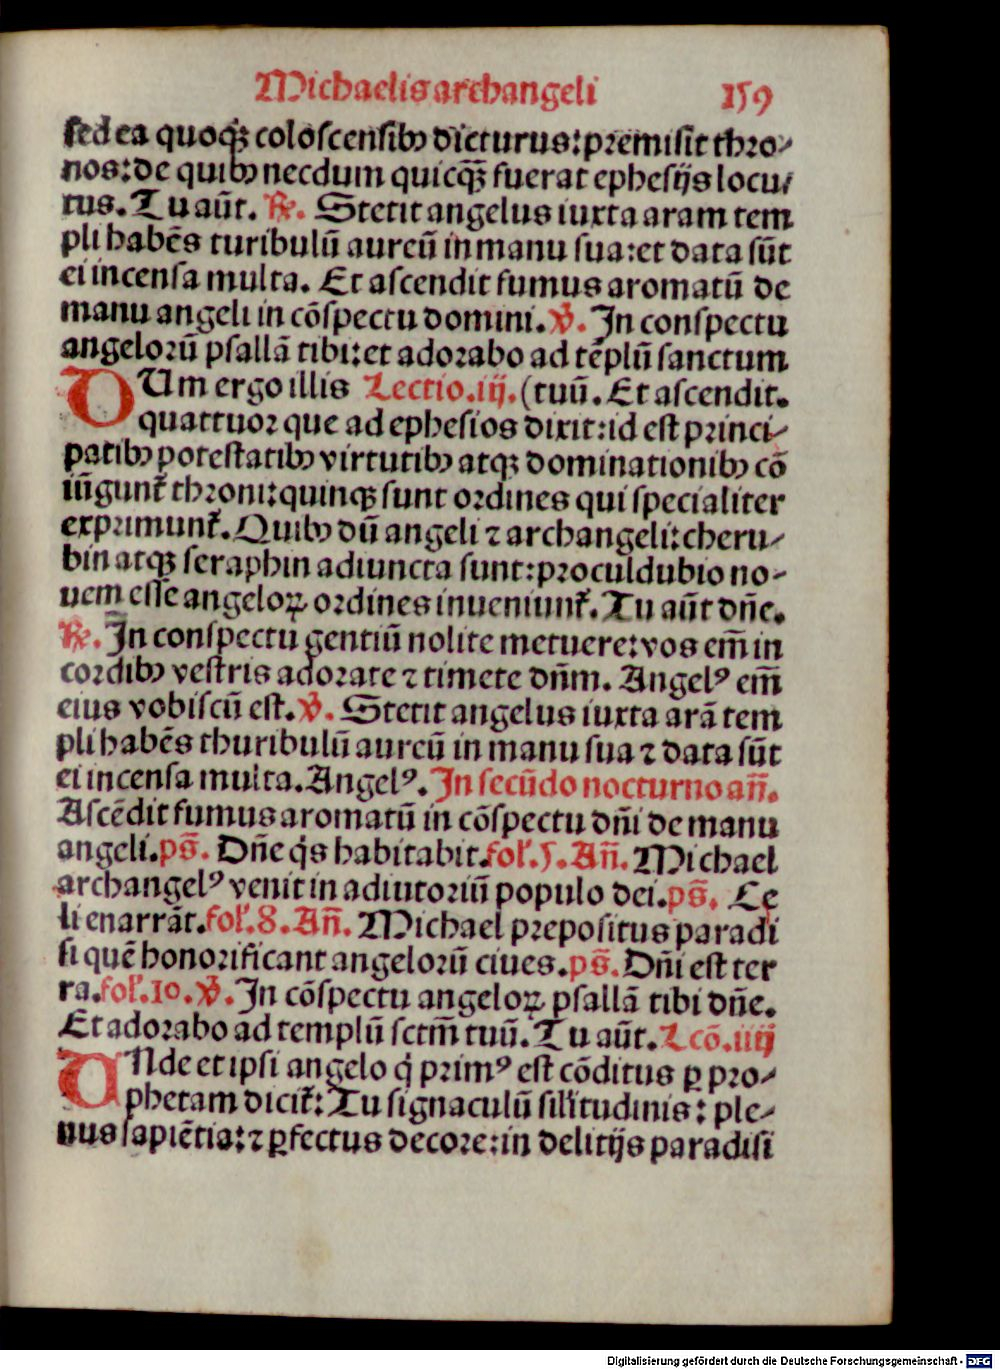 Michaelis archangeli 159
sed ea quoqꝫ coloscensibꝰ dicturus: premisit thro-
nos: de quibꝰ necdum quicqꝫ̃ fuerat ephesijs locu-
tus. Tu aūt. ℟. Stetit angelus iuxta aram tem
pli habēs turibulū aureū in manu sua: et data sūt
ei incensa multa. Et ascendit fumus aromatū de
manu angeli in cōspectu domini. ℣. In conspectu
angelorū psallā tibi: et adorabo ad tēplū sanctum
DUm ergo illis Lectio. iij. (tuū. Et ascendit.
quattuor que ad ephesios dixit: id est princi-
patibꝰ potestatibꝰ virtutibꝰ atqꝫ dominationibꝰ cō
iūgunt᷑ throni: quinqꝫ sunt ordines qui specialiter
exprimunt᷑. Quibꝰ dū angeli ⁊ archangeli: cheru-
bin atqꝫ seraphin adiuncta sunt: proculdubio no-
uem esse angeloꝝ ordines inueniunt᷑. Tu aūt dñe.
℟. In conspectu gentiū nolite metuere: vos em̄ in
cordibꝰ vestris adorate ⁊ timete dñm. Angelꝰ em̄
eius vobiscū est. ℣. Stetit angelus iuxta arā tem
pli habēs thuribulū aureū in manu sua ⁊ data sūt
ei incensa multa. Angelꝰ. In secūdo nocturno añ.
Ascēdit fumus aromatū in cōspectu dñi de manu
angeli. ps̄. Dñe q̇s habitabit. fol̓. 5. Añ. Michael
archangelꝰ venit in adiutoriū populo dei. ps̄. Ce
li enarrāt. fol̓. 8. Añ. Michael prepositus paradi
si quē honorificant angelorū ciues. ps̄. Dñi est ter
ra. fol̓. 10. ℣. In cōspectu angeloꝝ psallā tibi dñe.
Et adorabo ad templū sctm̄ tuū. Tu aūt. Lcō. iiij
UNde et ipsi angelo q̇ primꝰ est cōditus ꝑ pro-
phetam dicit᷑: Tu signaculū sil̓itudinis: ple-
nus sapiētia: ⁊ ꝑfectus decore: in delitijs paradisi
Digitalisierung gefördert durch die Deutsche Forschungsgemeinschaft - DFG